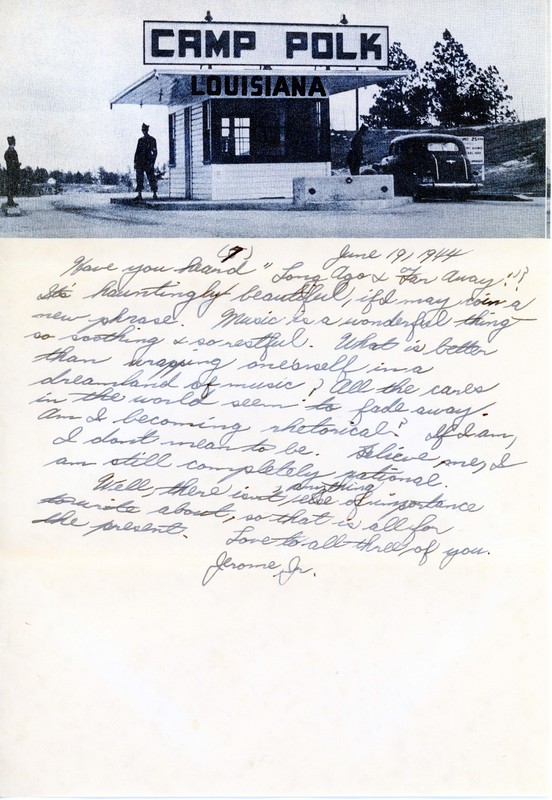 CAMP POLK
LOUISIANA
(7)
June 19, 1944
Have you heard "Long Ago & Far Away"?
It's hauntingly beautiful, if I may coin a
new phrase. Music is a wonderful thing
so soothing & so restful. What is better
than wrapping one'self in a
dreamland of music? All the cares
in the world seem to fade away.
Am I becoming rhetorical? If I am,
I don't mean to be. Believe me, I
am still completely rational.
Well, there isn't anything else of importance
to write about, so that is all for
the present. Love to all three of you.
Jerome, Jr.